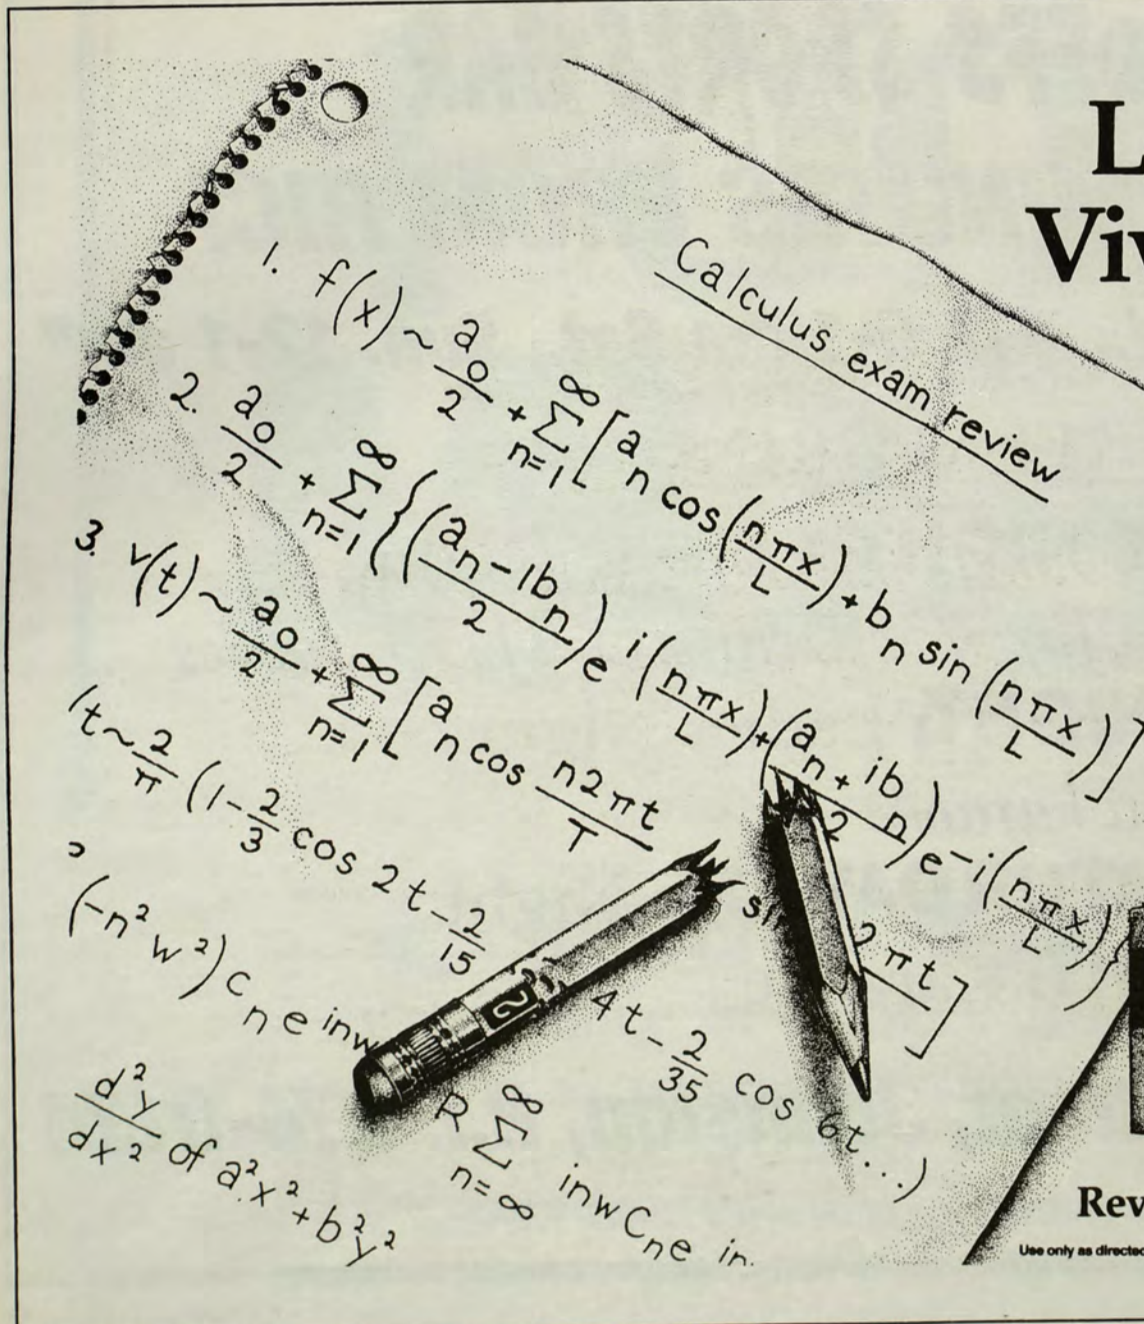 L
Viv
Calculus exam review
1. f(x) ~ a₀/2 + Σ n=1 ∞ [aₙ cos (nπx/L) + bₙ sin (nπx/L)]
2. a₀/2 + Σ n=1 ∞ {(aₙ - 1bₙ/2) e i(nπx/L) + (aₙ + ibₙ/2) e -i(nπx/L)}
3. v(t) ~ a₀/2 + Σ n=1 ∞ [aₙ cos n2πt/T si 2πt]
(t ~ 2/π (1 - 2/3 cos 2t - 2/15 4t - 2/35 cos 6t...)
(-n²w²) cₙe inw R Σ n=∞ ∞ inw Cₙe in.
d²y/dx² of a²x² + b²y²
2
Rev
Use only as directed